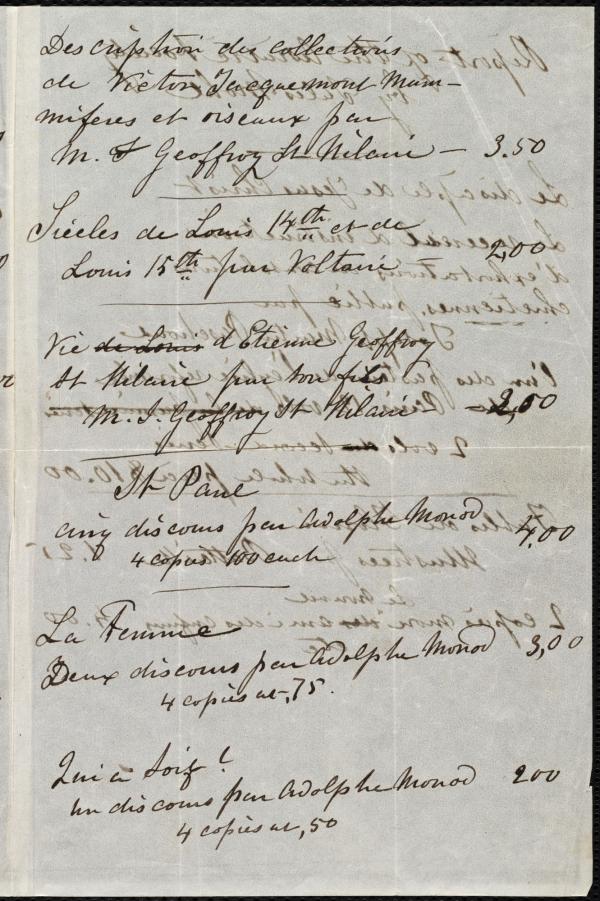 Description des collections
de Victor Jacquemont Mam-
miferes et oiseaux par
M. I Geoffroy St Hilaire - 3.50
Siécles de Louis 14th et de
Louis 15th par Voltaire - 2,00
Vie de Louis d'Etienne Geoffroy
St Hilaire par son fils
M. I. Geoffroy St Hilaire - 2,50
St Paul
cinq discours par Adolphe Monod 4,00
4 copies 100 each
La Femme
Deux discours par Adolphe Monod 3,00
4 copies at ,75.
Qui a soif?
un discours par Adolphe Monod 200
4 copies at ,50